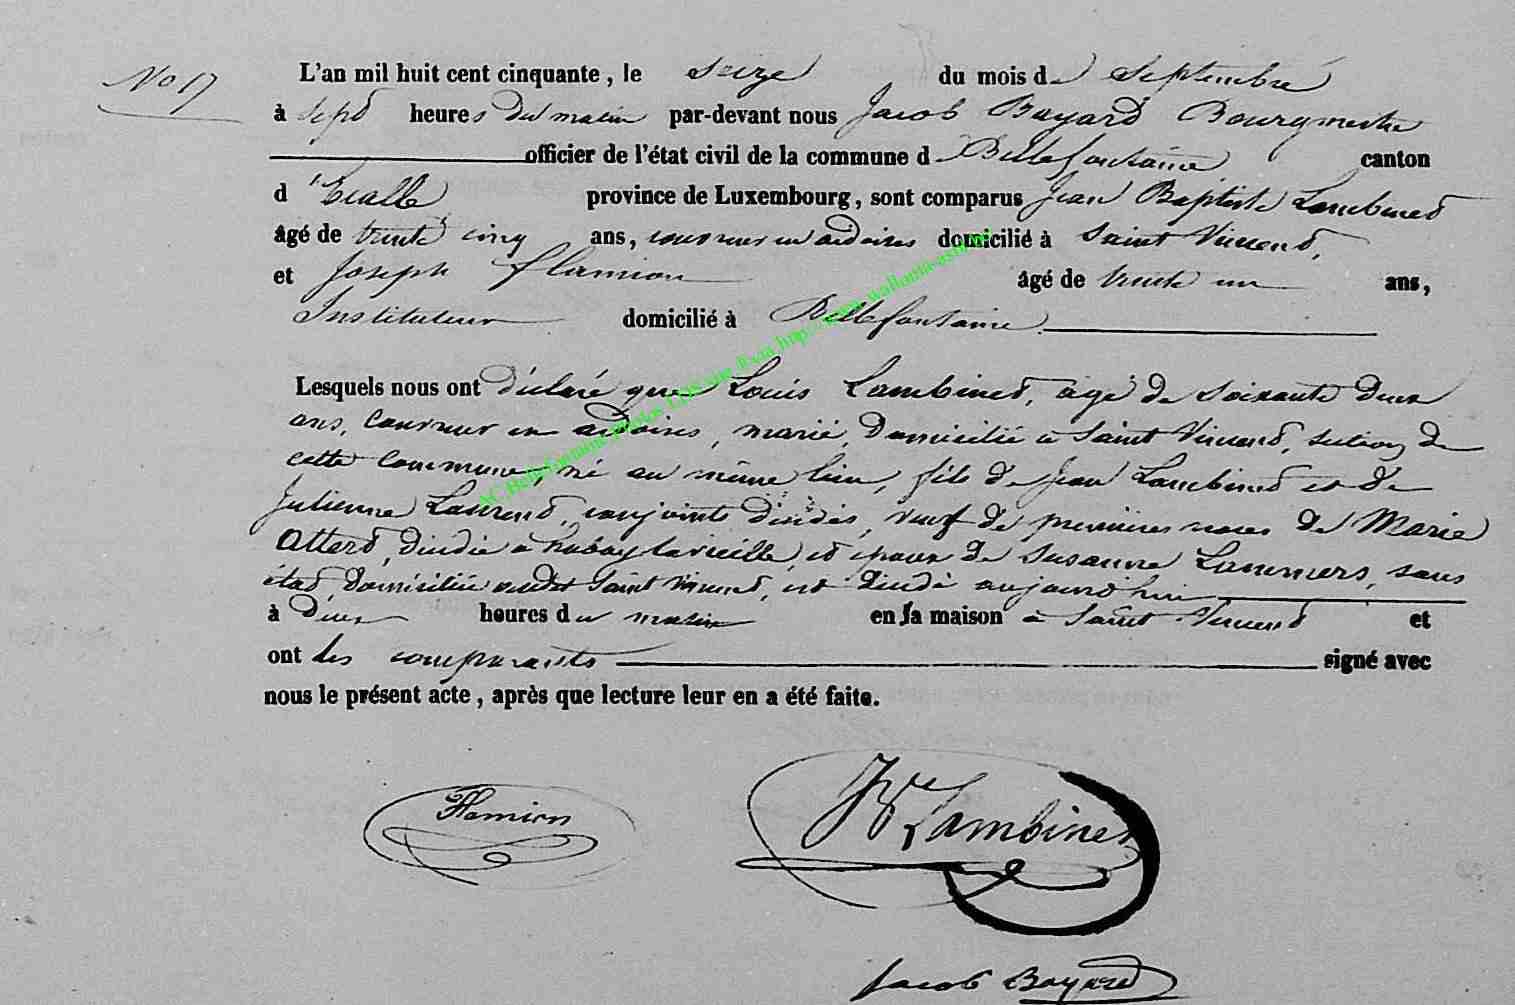 No 17
L'an mil huit cent cinquante, le seize du mois de Septembre
à sept heures du matin par-devant nous Jacob Bayard Bourgmestre
officier de l'état civil de la commune d Bellefontaine canton
d'Etalle province de Luxembourg, sont comparus Jean Baptiste Lambinet
âgé de trente cinq ans, couvreur en ardoises domicilié à Saint Vincent,
et Joseph Flamion âgé de trente un ans,
Instituteur domicilié à Bellefontaine
Lesquels nous ont déclaré que Louis Lambinet, âgé de soixante deux
ans, couvreur en ardoises, marié, domicilié à Saint Vincent, section de
cette commune, né au même lieu, fils de Jean Lambinet et de
Julienne Laurent, conjoints décédés, veuf de premières noces de Marie
Attert, décédée à habay la vieille, et époux de Susanne Lammers, sans
état, domiciliée audit Saint Vincent, est décédé aujourd'hui
à deux heures du matin en sa maison à Saint Vincent et
ont les comparants signé avec
nous le présent acte, après que lecture leur en a été faite.
Flamion
JB Lambinet
Jacob Bayard